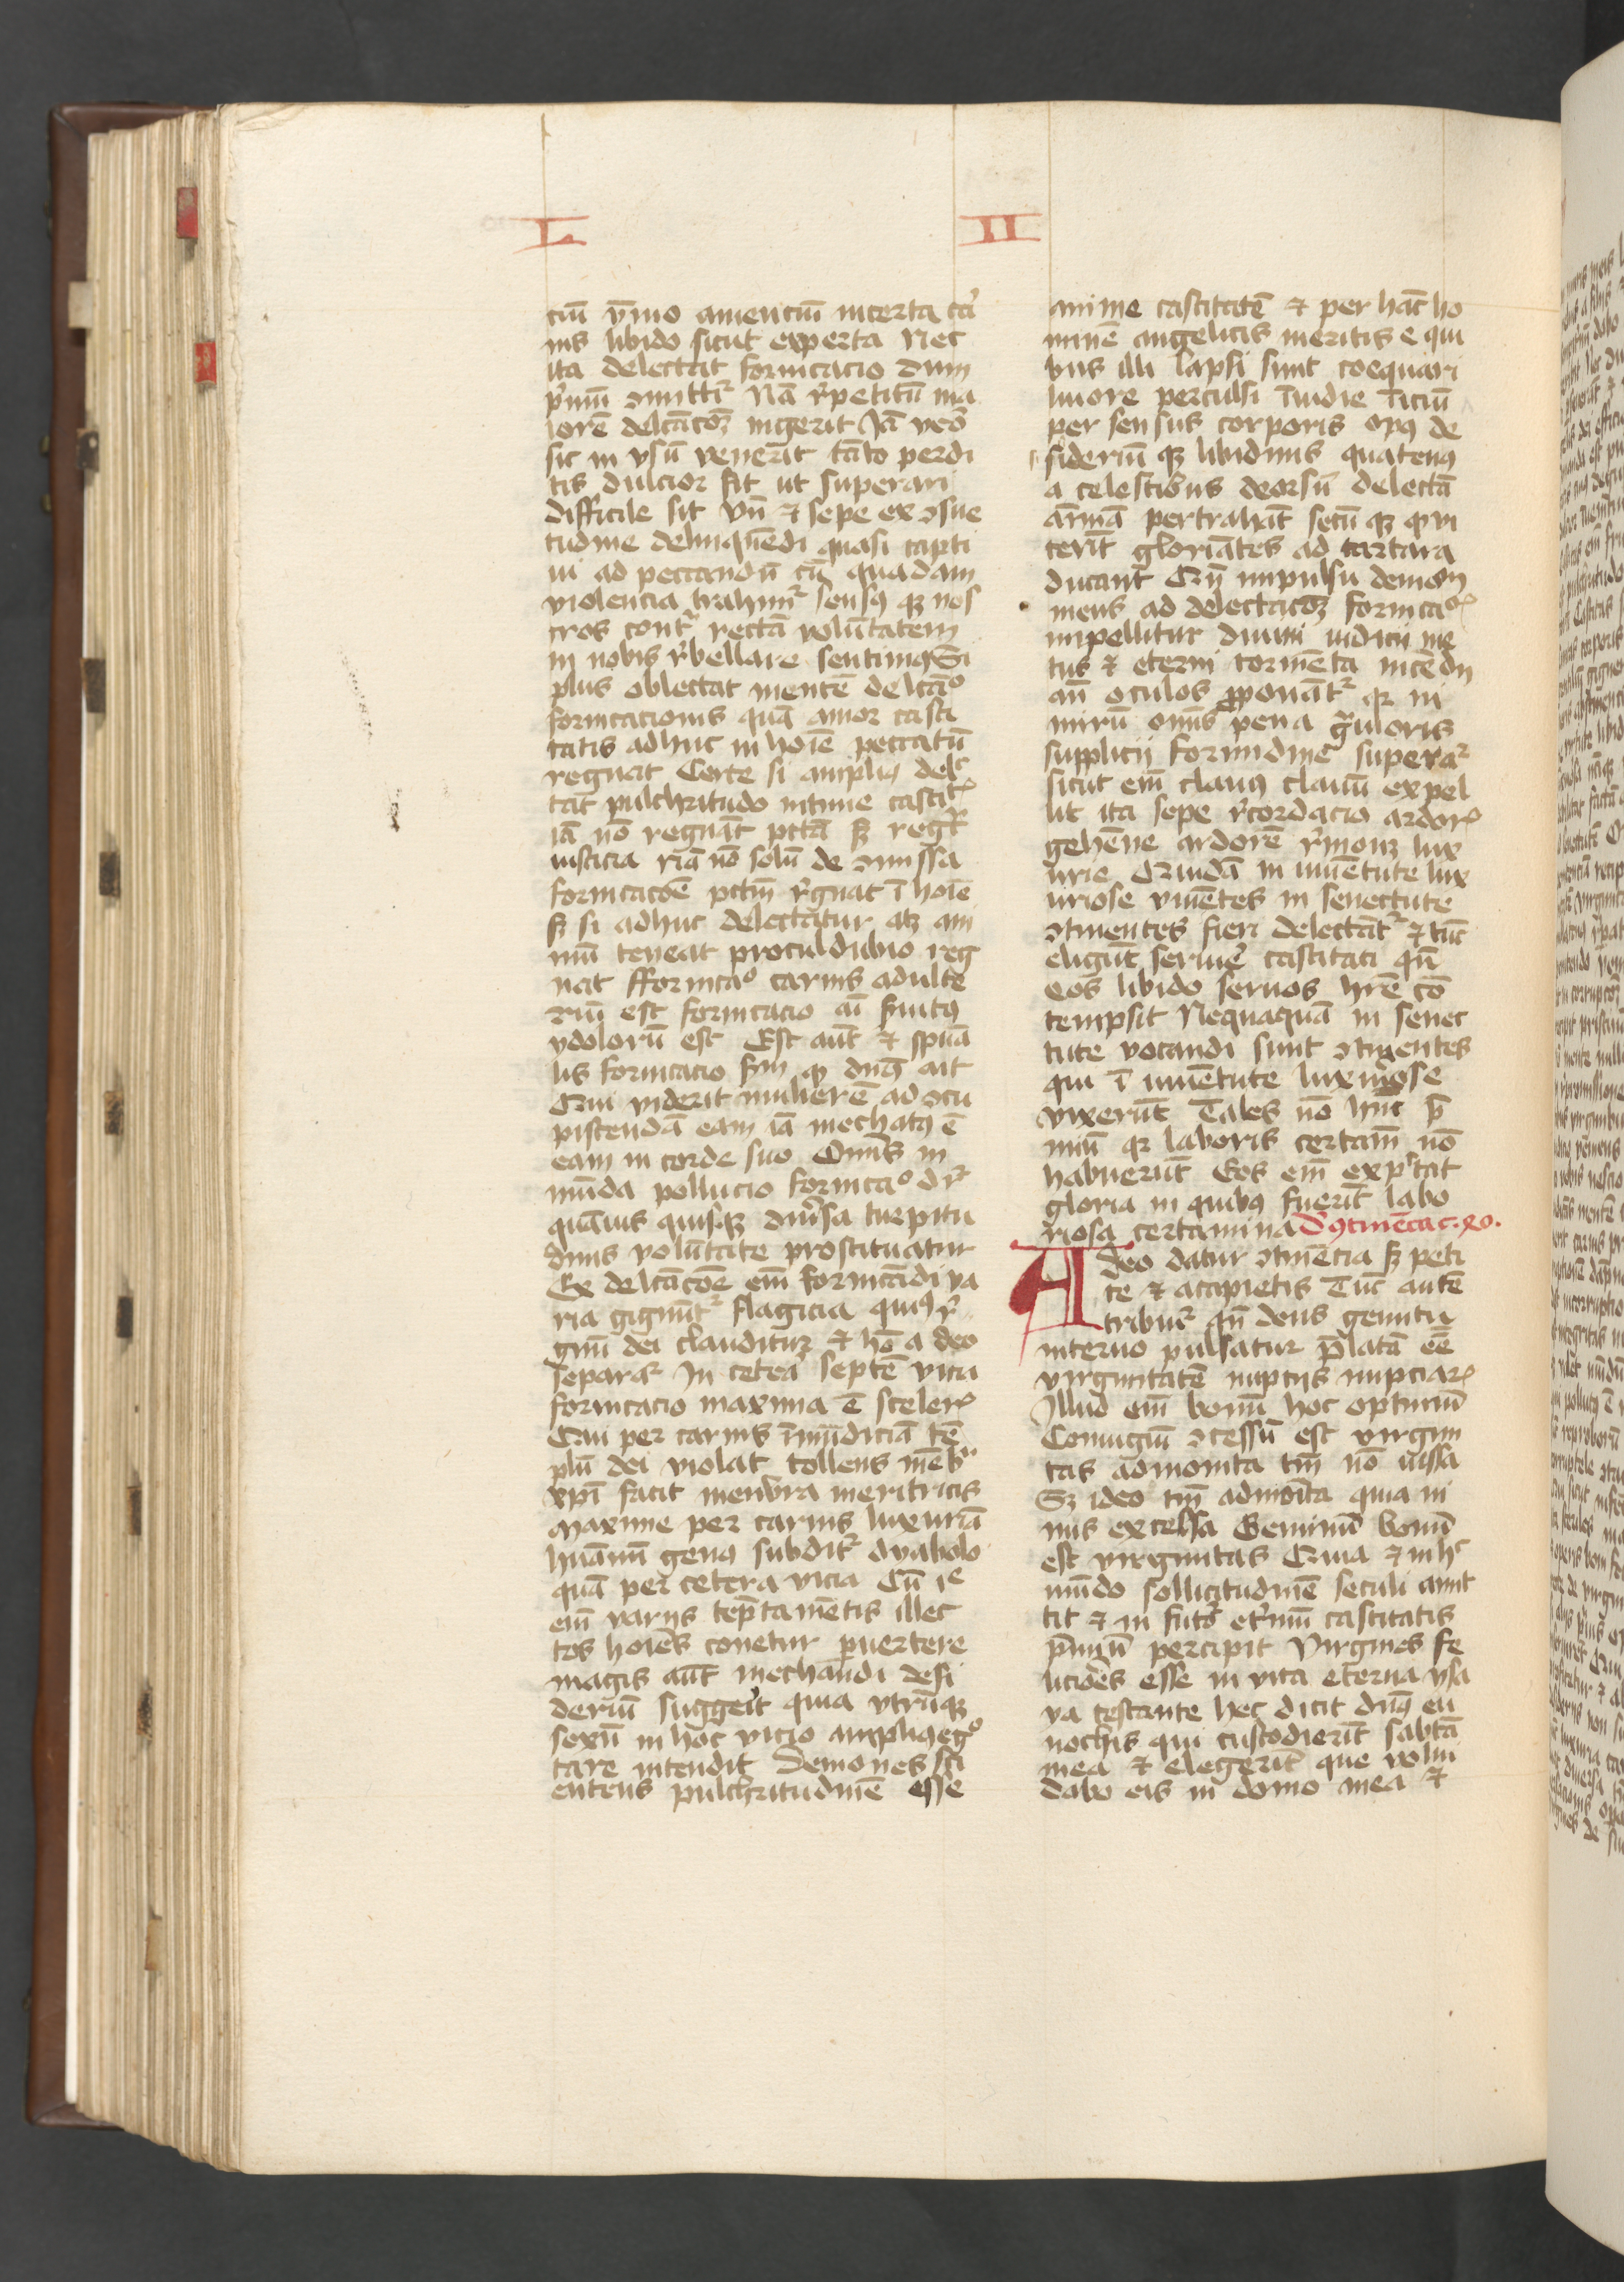 L II
ciū ymo amenciū incerta car̄
nis libido sicut experta Nec
ita delectat fornicacio dum
p̓mū ɔmittit᷑ Nā r̓petitū ma
iorē delcācōꝫ ingerit Jā vero
sic in vsū venerit tāto perdi
tis dulcior fit ut superari
difficile sit Vn̄ ⁊ sepe ex ɔsue
tudine delinquēdi quasi capti
ui ad peccandū cū quadam
violencia trahim᷑ sensꝯ qꝫ nos
tros cont᷑ rectā volūtatem
in nobis r̓bellare sentimꝯ Si
plus oblectat mentē delcāo
fornicacionis quā amor casti
tatis adhuc in hoīe peccatū
regnat Certe si ampliꝯ delc
tat pulchritudo intime castit᷑
iā nō regnāt pctā sꝫ regt᷑
iusticia nā nō solū de ɔmissa
fornicacōe pctm̄ r̓gnat ī hoīe
sꝫ si adhuc delectatur atꝫ ani
mū teneat proculdubio reg
nat Ffornicao carnis adulte
riū est fornicacio aī s̓uitꝯ
ydolorū est Est aūt ⁊ spūa
lis fornicacio sm̄ qꝫ dn̄s ait
Qui viderit mulierē ad ɔcu
piscendā eam iā mechatꝯ ē
eam in corde suo Omīs in
mūda pollucio fornicao dr᷑
quāuis quisqꝫ diu̓sa turpitu
dinis volūtate prostituatur
Ex delcācōe em̄ fornicādi va
ria gignūt᷑ flagicia quibꝯ r̓
gnū dei clauditur ⁊ hō a deo
separat᷑ In cetera septē vicia
fornicacio maxima ē sceleꝝ
Qui per carnis īmūdiciā tē
plū dei violat tollens mēbra
xp̄i facit menbra meritricis
Maxime per carnis luxuriā
hūanū genꝯ subdit᷑ dyabolo
quā per cetera vicia Cū ie
em̄ varijs tēptamētis illec
tos hoīes conetur puertere
magis aūt mechandi desi
deriū suggerit quia vtrūqꝫ
sexū in hoc vicio ampliꝯ ego
tare intendit Demones sci
entens pulchritudinē esse
anime castitatē ⁊ per hāc ho
minē angelicis meritis e qui
bus illi lapsi sunt coequari
liuore perculsi īuidie īiciūt
per sensus corporis opꝯ de
sideriū qꝫ libidinis quatenꝯ
a celestibus deorsū delectā
aīmā pertrahāt secū qꝫ qꝫ vi
cerīt gloriātes ad tartara
ducant Qn̄ impulsu demonū
mens ad delectacōꝫ fornicaꝝ
impellitur diuini iudicij me
tus ⁊ eterni tormēta incēdij
an̄ oculos ꝓponāt᷑ qꝫ ni
mirū omīs pena g̓uioris
supplicij formidine superat᷑
sicut em̄ clauꝯ clauū expel
lit ita sepe r̓cordacio ardoꝝ
gehēne ardorē r̓mouꝫ lux
urie Quidā in iuuētute lux
uriose viuētes in senectute
ɔtinentes fieri delectāt᷑ ⁊ tūc
eligūt seruir̓ castitati qn̄
eos libido seruos hr̄e cō
tempsit Nequaquā in senec
tute vocandi sunt ɔtinentes
qui ī iuuētute luxuriose
vixerūt Tales nō hn̄t p̄
miū qꝫ laboris certam̄ nō
habuerūt Eos em̄ expectat
gloria in quibꝯ fuerīt labo
riosa certamina D̓ ꝯtinēcia c. xo.
A deo datur ɔtinēcia sꝫ peti
te ⁊ accipietis Tūc autē
tribuit᷑ qn̄ deus gemitu
interno pulsatur p̄latā eē
virginitatē nuptijs nupciaꝝ
Illud em̄ bonū hoc optimū
Coniugiū ɔcessū est virgini
tas admonita tm̄ nō iussa
Sꝫ ideo tm̄ admōita quia ni
mis excelsa Geminū bonū
est virginitas Quia ⁊ in hc
mūdo sollicitudinē seculi amit
tit ⁊ in futo et̓nū castitatis
p̄miū percipit Virgines fe
liciōes esse in vita eterna ysa
ya testante hec dicit dn̄s eu
nochis qui custodierīt sabta
mea ⁊ elegerīt que volui
dabo eis in domo mea ⁊